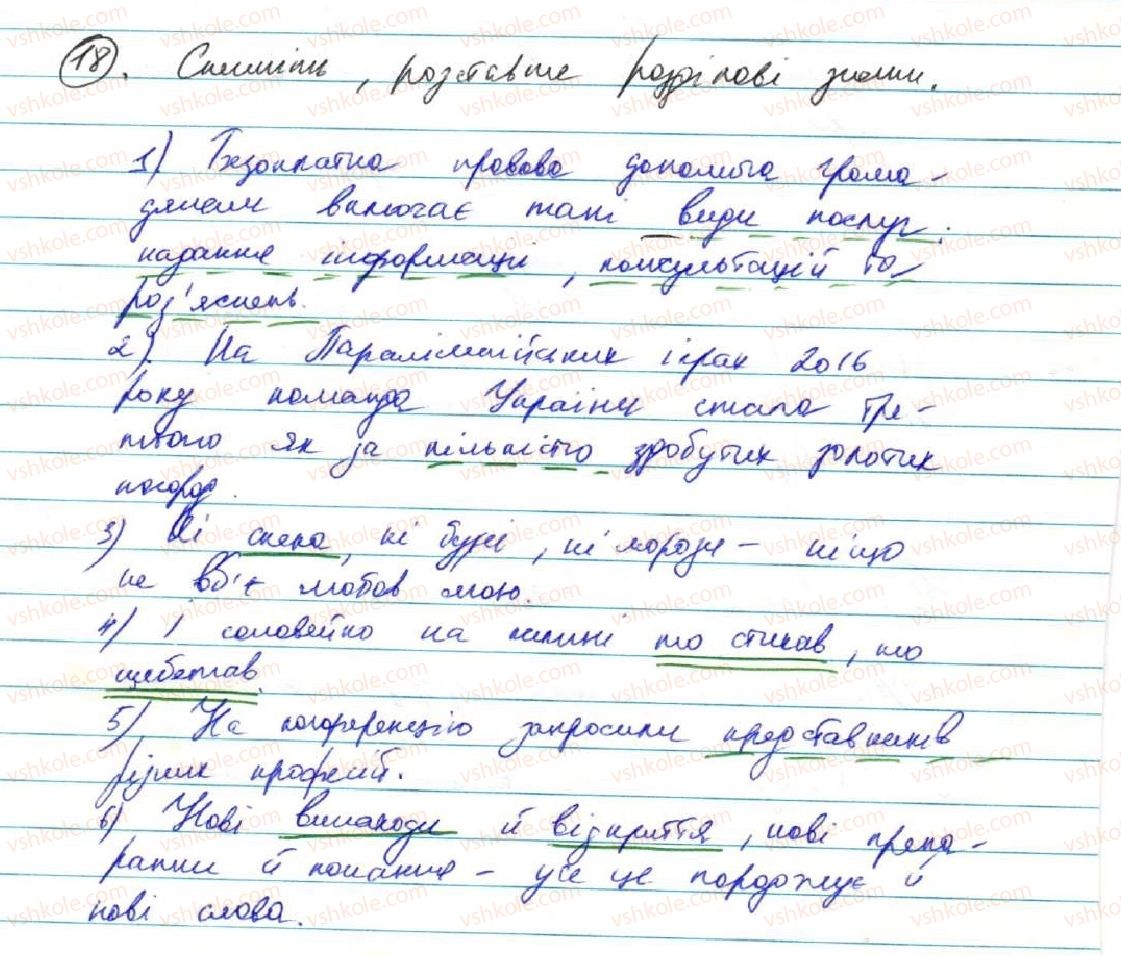 18. Спишіть, розставте розділові знаки.
1) Безоплатна правова допомога грома-
дянам включає такі види послуг:
надання інформації, консультацій та
роз'яснень.
2) На Паралімпійських іграх 2016
року команда України стала тре-
тьою як за кількістю здобутих золотих
нагород.
3) Ні спека, ні бурі, ні морози – ніщо
не вб'є любов мою.
4) І соловейко на калині то стихав, то
щебетав.
5) На конференцію запросили представників
різних професій.
6) Нові винаходи й відкриття, нові препа-
рати й – усе це породжує й
нові слова.